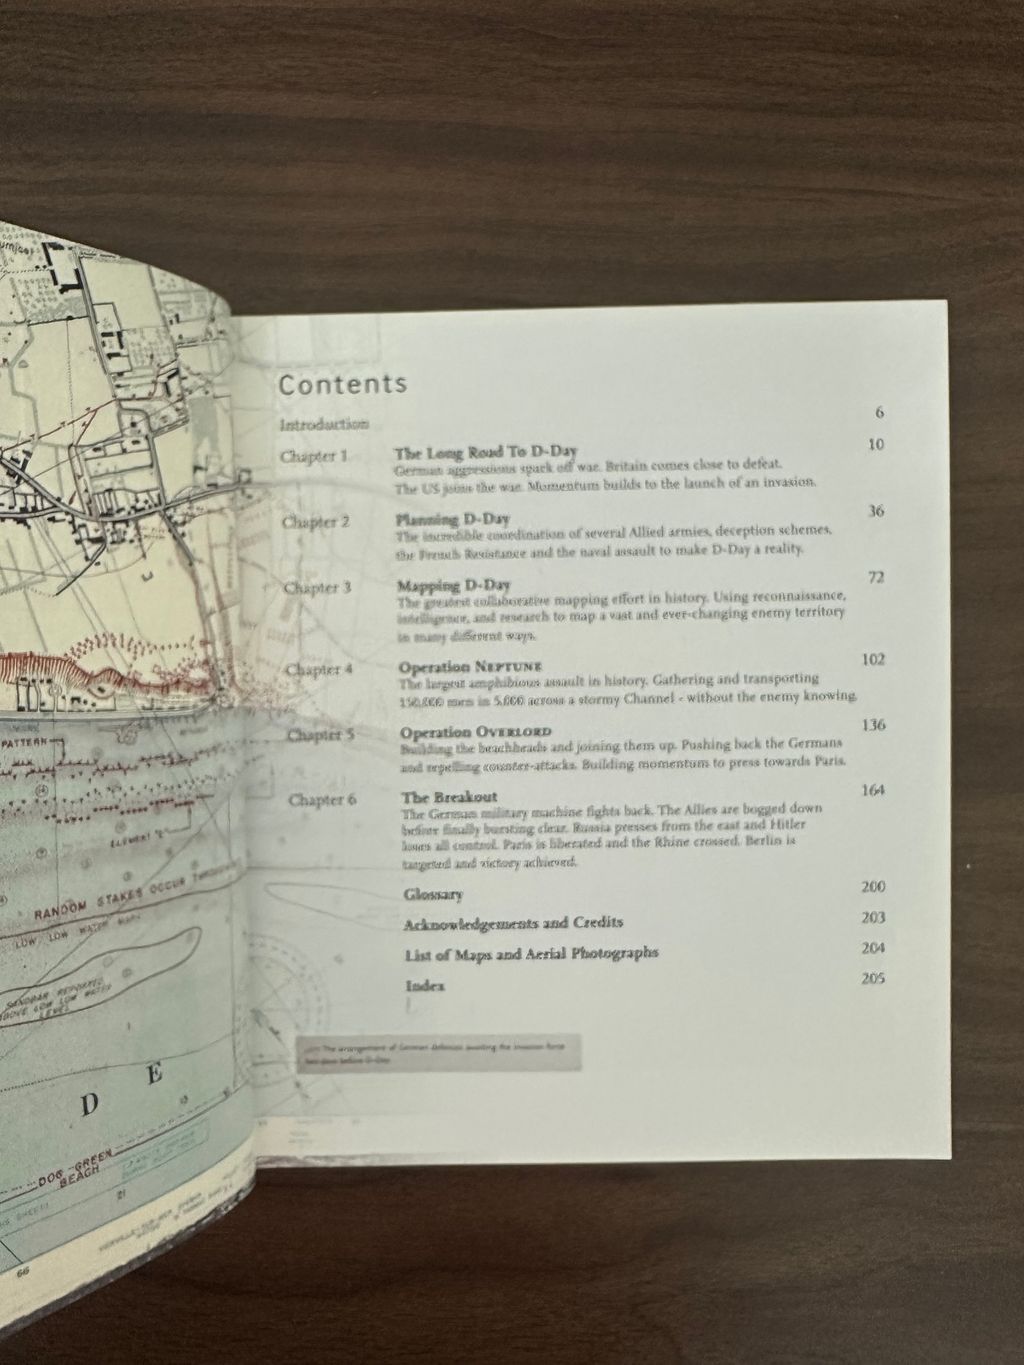 PATTERN
ELEMENT "E"
RANDOM STAKES OCCUR
LOW LOW WATER MARK
SANDBAR REPORTED
ABOVE LOW LOW WATER
LEVEL
D E
DOG GREEN
BEACH
21
66
Contents
Introduction 6
Chapter 1 The Long Road To D-Day 10
German aggressions spark off war. Britain comes close to defeat.
The US joins the war. Momentum builds to the launch of an invasion.
Chapter 2 Planning D-Day 36
The incredible coordination of several Allied armies, deception schemes,
the French Resistance and the naval assault to make D-Day a reality.
Chapter 3 Mapping D-Day 72
The greatest collaborative mapping effort in history. Using reconnaissance,
intelligence, and research to map a vast and ever-changing enemy territory
in many different ways.
Chapter 4 Operation NEPTUNE 102
The largest amphibious assault in history. Gathering and transporting
150,000 men in 5,000 across a stormy Channel - without the enemy knowing.
Chapter 5 Operation OVERLORD 136
Building the beachheads and joining them up. Pushing back the Germans
and repelling counter-attacks. Building momentum to press towards Paris.
Chapter 6 The Breakout 164
The German military machine fights back. The Allies are bogged down
before finally bursting clear. Russia presses from the east and Hitler
loses all control. Paris is liberated and the Rhine crossed. Berlin is
targeted and victory achieved.
Glossary 200
Acknowledgements and Credits 203
List of Maps and Aerial Photographs 204
Index 205
The arrangement of German defences awaiting the invasion force
two days before D-Day